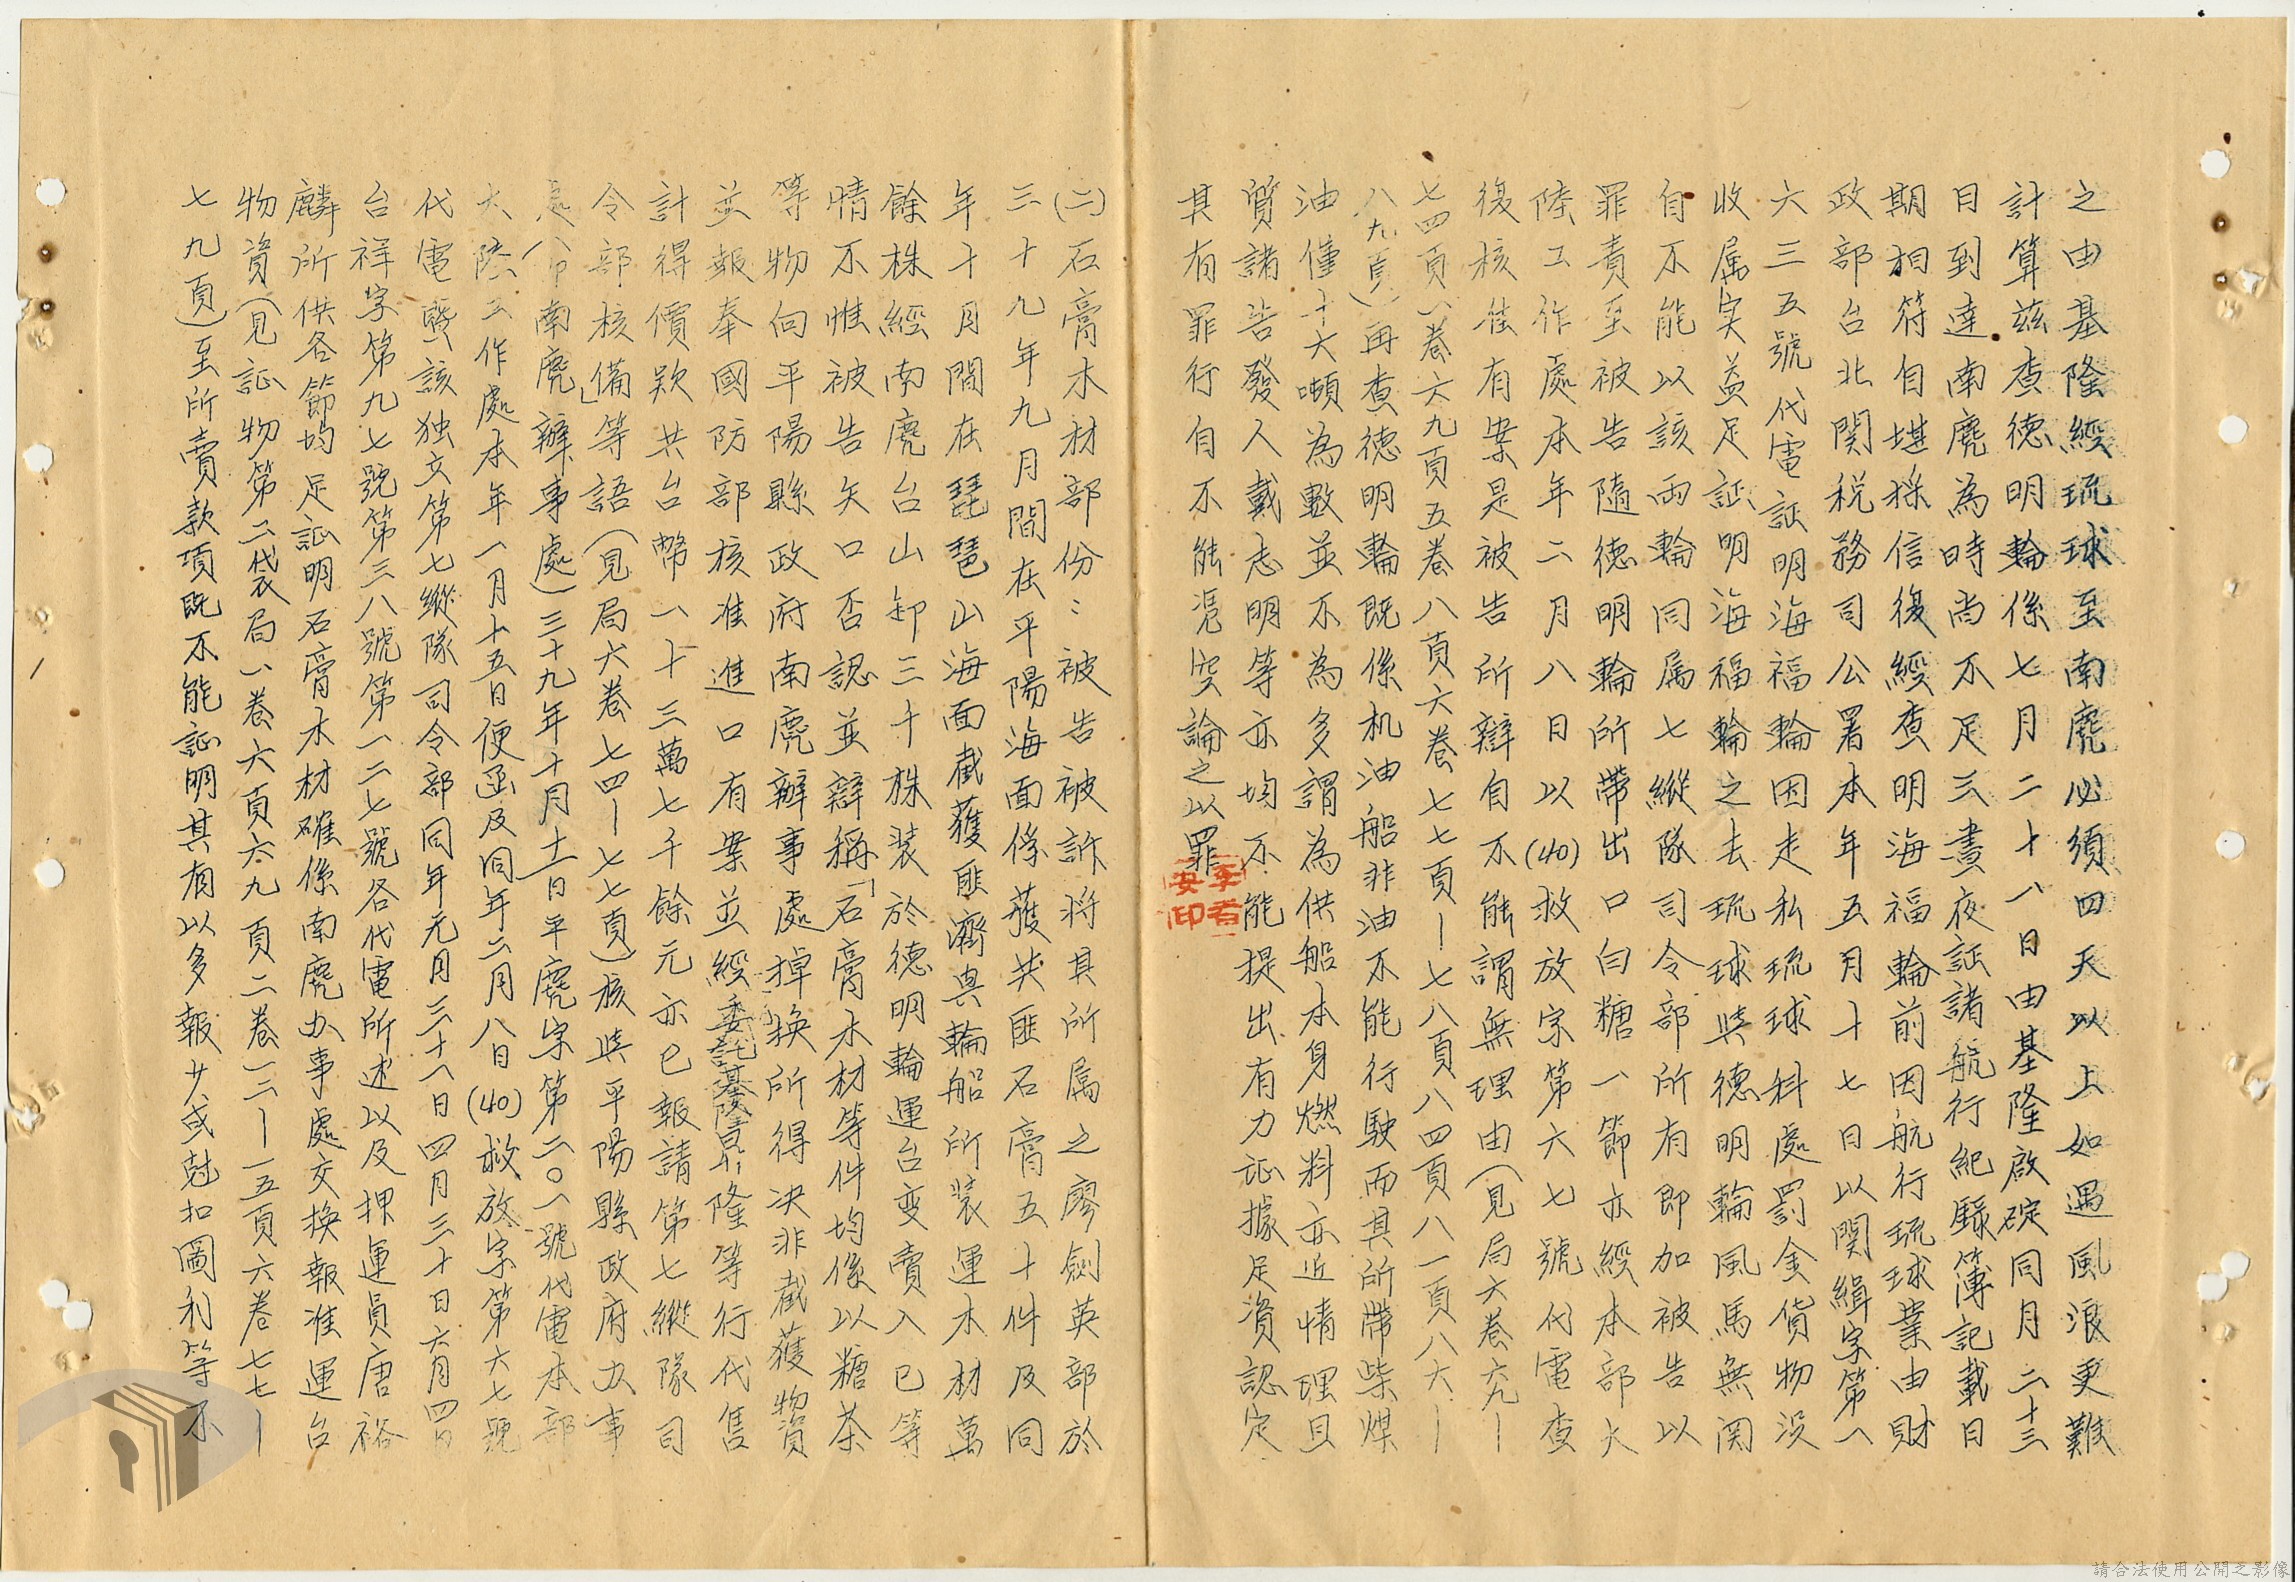 之由基隆經琉球至南麂必須四天以上如遇風浪更難
計算茲查德明輪係七月二十八日由基隆啟碇同月二十三
日到達南麂為時尚不足三晝夜証諸航行紀錄簿記載日
期相符自堪採信復經查明海福輪前因航行琉球業由財
政部台北関税務司公署本年五月十七日以関緝字第一
六三五號代電証明海福輪因走私琉球科處罰金貨物没
收属实益足証明海福輪之去琉球與德明輪風馬無関
自不能以該両輪同属七縱隊司令部所有即加被告以
罪責至被告隨德明輪所帶出口白糖一節亦經本部大
陸工作處本年二月八日以(40)救放字第六七號代電查
復核准有案是被告所辯自不能謂無理由(見局六卷
七四頁八卷六九頁五卷八頁六卷七七頁—七八頁八四頁八一頁八六—
八九頁)再查德明輪既係机油船非油不能行駛而其所帶柴煤
油僅十六噸為數並不為多謂為供船本身燃料亦近情理且
質諸告發人戴志明等亦均不能提出有力証據足資認定
其有罪行自不能憑空論之以罪
李春安印
(二)石膏木材部份：被告被訴将其所属之廖劍英部於
三十九年九月間在平陽海面俘獲共匪石膏五十件及同
年十月間在琵琶山海面截獲匪濟興輪船所装運木材萬
餘株經南麂台山卸三千株装於德明輪運台变賣入己等
情不惟被告矢口否認並辯稱「石膏木材等件均係以糖茶
等物向平陽縣政府南麂辦事處掉换所得决非截獲物資
並報奉國防部核准進口有案並經委託基隆等行代售
計得價欵共台幣八十三萬七千餘元亦已報請第七縱隊司
令部核備」等語(見局六卷七四—七七頁)核與平陽縣政府办事
處(即南麂辦事處)三十九年十月十一日平麂字第二〇八號代電本部
大陸工作處本年一月十五日便函及同年二月八日(40)救放字第六七號
代電暨該独立第七縱隊司令部同年元月三十八日四月三十日六月四日
台祥字第九七號第三八號第一二七號各代電所述以及押運員唐裕
麟所供各節均足証明石膏木材確係南麂办事處交换報准運台
物資(見証物第二袋局八卷六頁六九頁二卷一二—一五頁六卷七七—
七九頁)至所賣款項既不能証明其有以多報少或尅扣圖利等不
請合法使用公開之影像